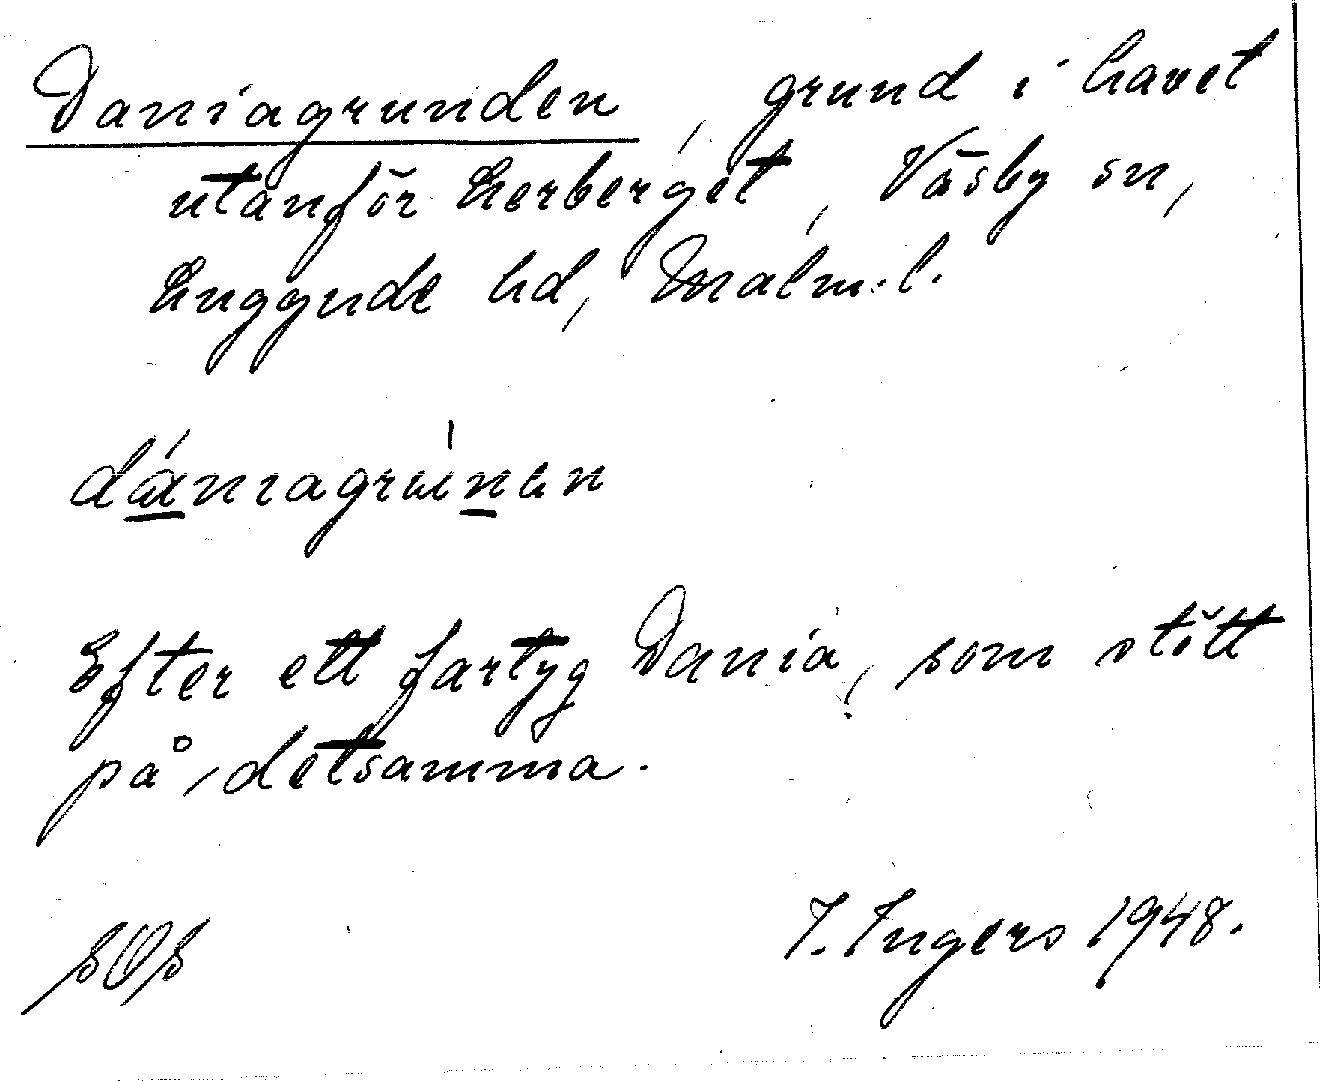 Daniagrunden, grund i havet
utanför Lerberget, Väsby sn,
Luggude hd, Malm. l.
dániagrúnen
Efter ett fartyg Dania, som stött
på detsamma.
I. Ingers 1948.